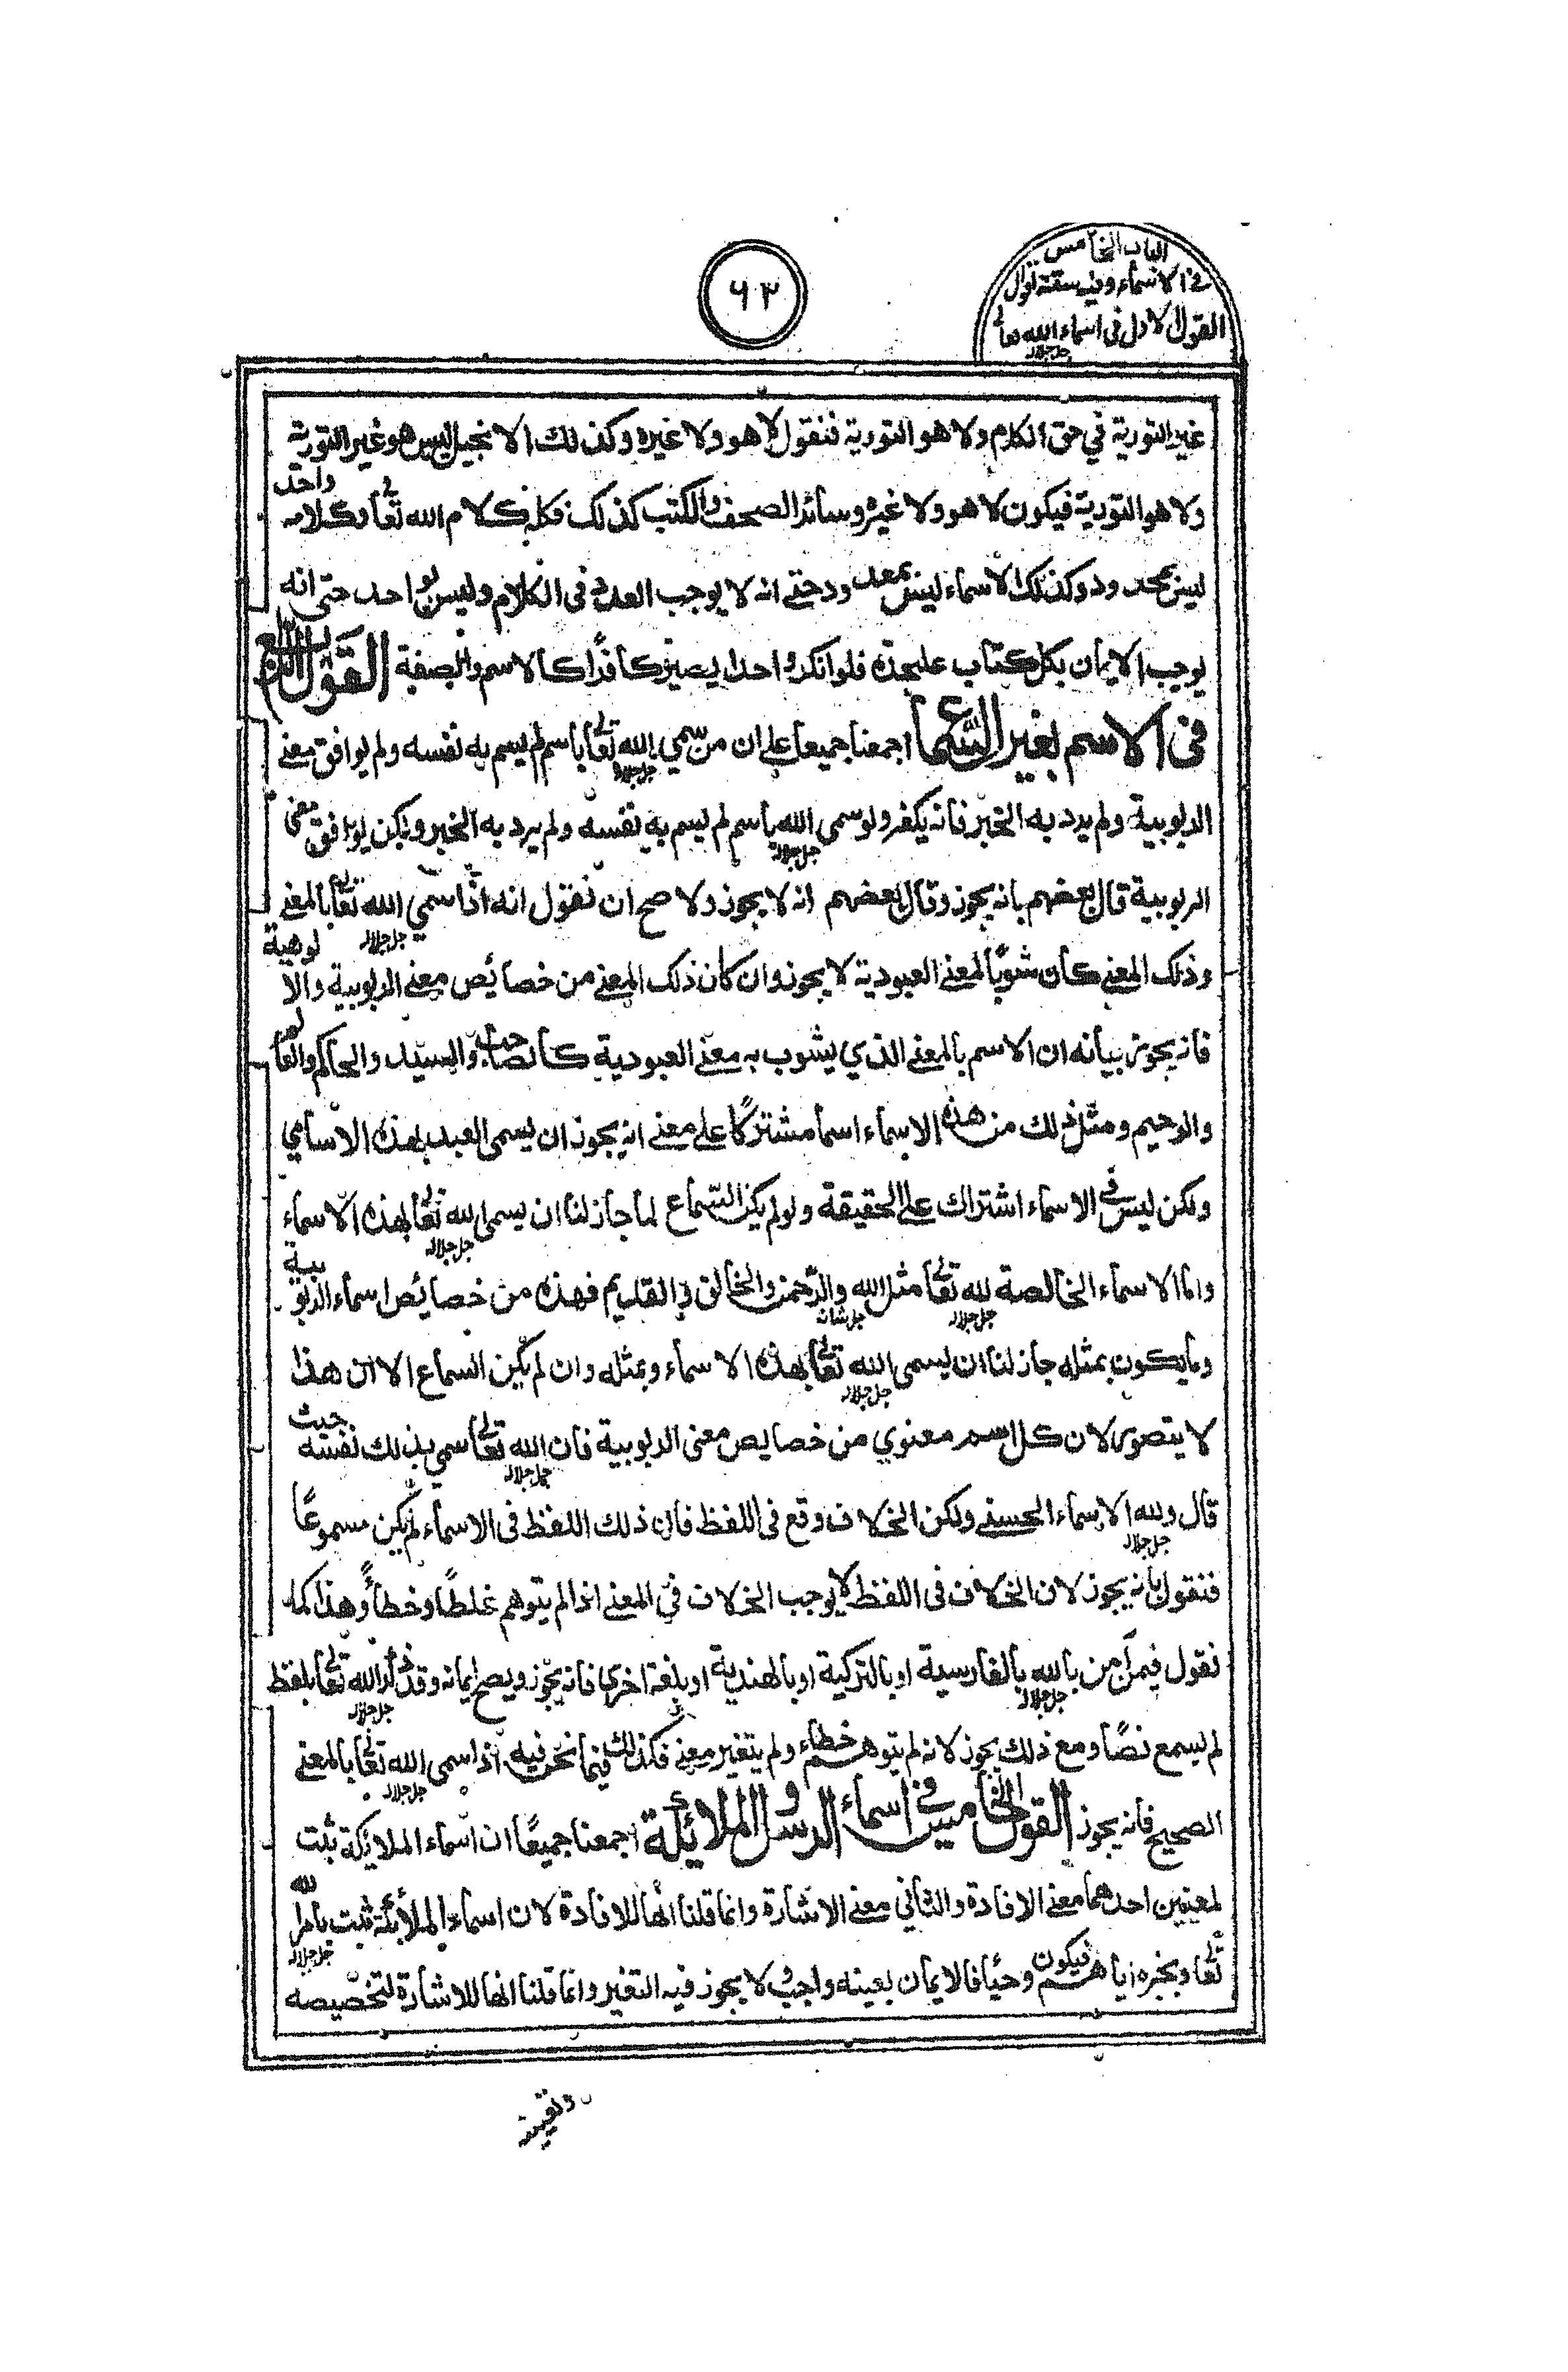 الباب الخامس
في الاسماء وفيه ستة اقوال
القول الاول في اسماء الله تعالى
جل جلاله
٦٣
غير التورية في حق الكلام ولا هو التورية فنقول لا هو ولا غيره وكذلك الانجيل ليس هو غير التورية
ولا هو التورية فيكون لا هو ولا غيره وسائر الصحف والكتب كذلك فكله كلام الله تعالى وكلامه واحد
ليس بمحدود وكذلك الاسماء ليس بمعدود حتى انه لا يوجب العدد في الكلام وليس بواحد حتى انه
يوجب الايمان بكل كتاب عليحدة فلو انكر واحدا يصير كافرًا كالاسم والصفة القول الرابع
في الاسم بغير السماع اجمعنا جميعا على ان من سمي الله تعالى جل جلاله باسم لم يسم به نفسه ولم يوافق معنى
الربوبية ولم يرد به الخبر فانه يكفر ولو سمى الله جل جلاله باسم لم يسم به نفسه ولم يرد به الخبر ولكن يوافق معنى
الربوبية قال بعضهم بانه يجوز وقال بعضهم انه لا يجوز ولا صح ان نقول انه اذا سمي الله تعالى جل جلاله بالمعنى
وذلك المعنى كان شوبًا لمعنى العبودية لا يجوز وان كان ذلك المعنى من خصائص معنى الربوبية والالوهية
فانه يجوز بيانه ان الاسم بالمعنى الذي يشوب به معنى العبودية كالصاحب والسيد والحاكم والعالم
والرحيم ومثل ذلك من هذه الاسماء اسما مشتركًا على معنى انه يجوز ان يسمى العبد بهذه الاسامي
ولكن ليس في الاسماء اشتراك على الحقيقة ولو لم يكن السماع لما جاز لنا ان يسمى الله تعالى جل جلاله بهذه الاسماء
واما الاسماء الخالصة لله تعالى جل جلاله مثل الله جل شانه والرحمن والخالق والقديم فهذه من خصائص اسماء الربوبية
وما يكون بمثله جاز لنا ان يسمى الله تعالى جل جلاله بهذه الاسماء وبمثله وان لم يكن السماع الا ان هذا
لا يتصور لان كل اسم معنوي من خصايص معنى الربوبية فان الله تعالى جل جلاله سمي بذلك نفسه حيث
قال ولله جل جلاله الاسماء الحسنى ولكن الخلاف وقع في اللفظ فان ذلك اللفظ في الاسماء لم يكن مسموعًا
فنقول بانه يجوز لان الخلاف في اللفظ لا يوجب الخلاف في المعنى اذا لم يتوهم غلطًا وخطأً وهذا كما
نقول فيمن آمن بالله جل جلاله بالفارسية او بالتركية او بالهندية او بلغة اخرى فانه يجوز ويصح ايمانه وقد ذكر الله تعالى جل جلاله بلفظ
لم يسمع نصًا ومع ذلك يجوز لانه لم يتوهم خطاء ولم يتغير معنى فكذلك فيما نحن فيه اذا سمى الله تعالى جل جلاله بالمعنى
الصحيح فانه يجوز القول الخامس في اسماء الرسل و الملائكة اجمعنا جميعًا ان اسماء الملائكة ثبت
لمعنيين احدهما معنى الافادة والثاني معنى الاشارة وانما قلنا انها للافادة لان اسماء الملائكة ثبت بامر الله
تعالى جل جلاله وبخبره اياهم فيكون وحيًا فالايمان بعينه واجب ولا يجوز فيه التغير وانما قلنا انها للاشارة لتخصيصه